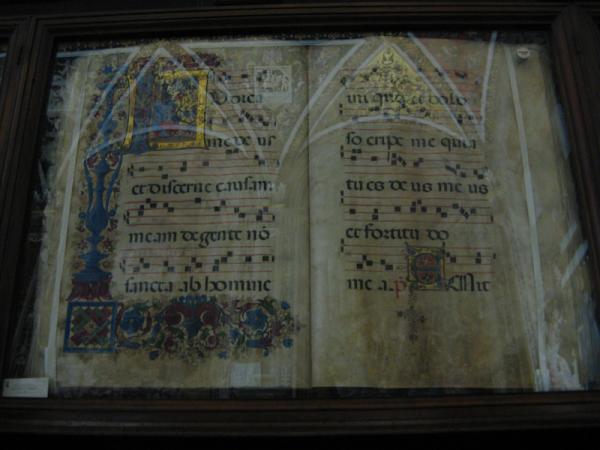 udica
me de us
et discerne causam
meam de gente nō
sancta ab homine
iniquo et dolo
so eripe me quia
tu es de us me us
et fortitu do
me a. p. Emit